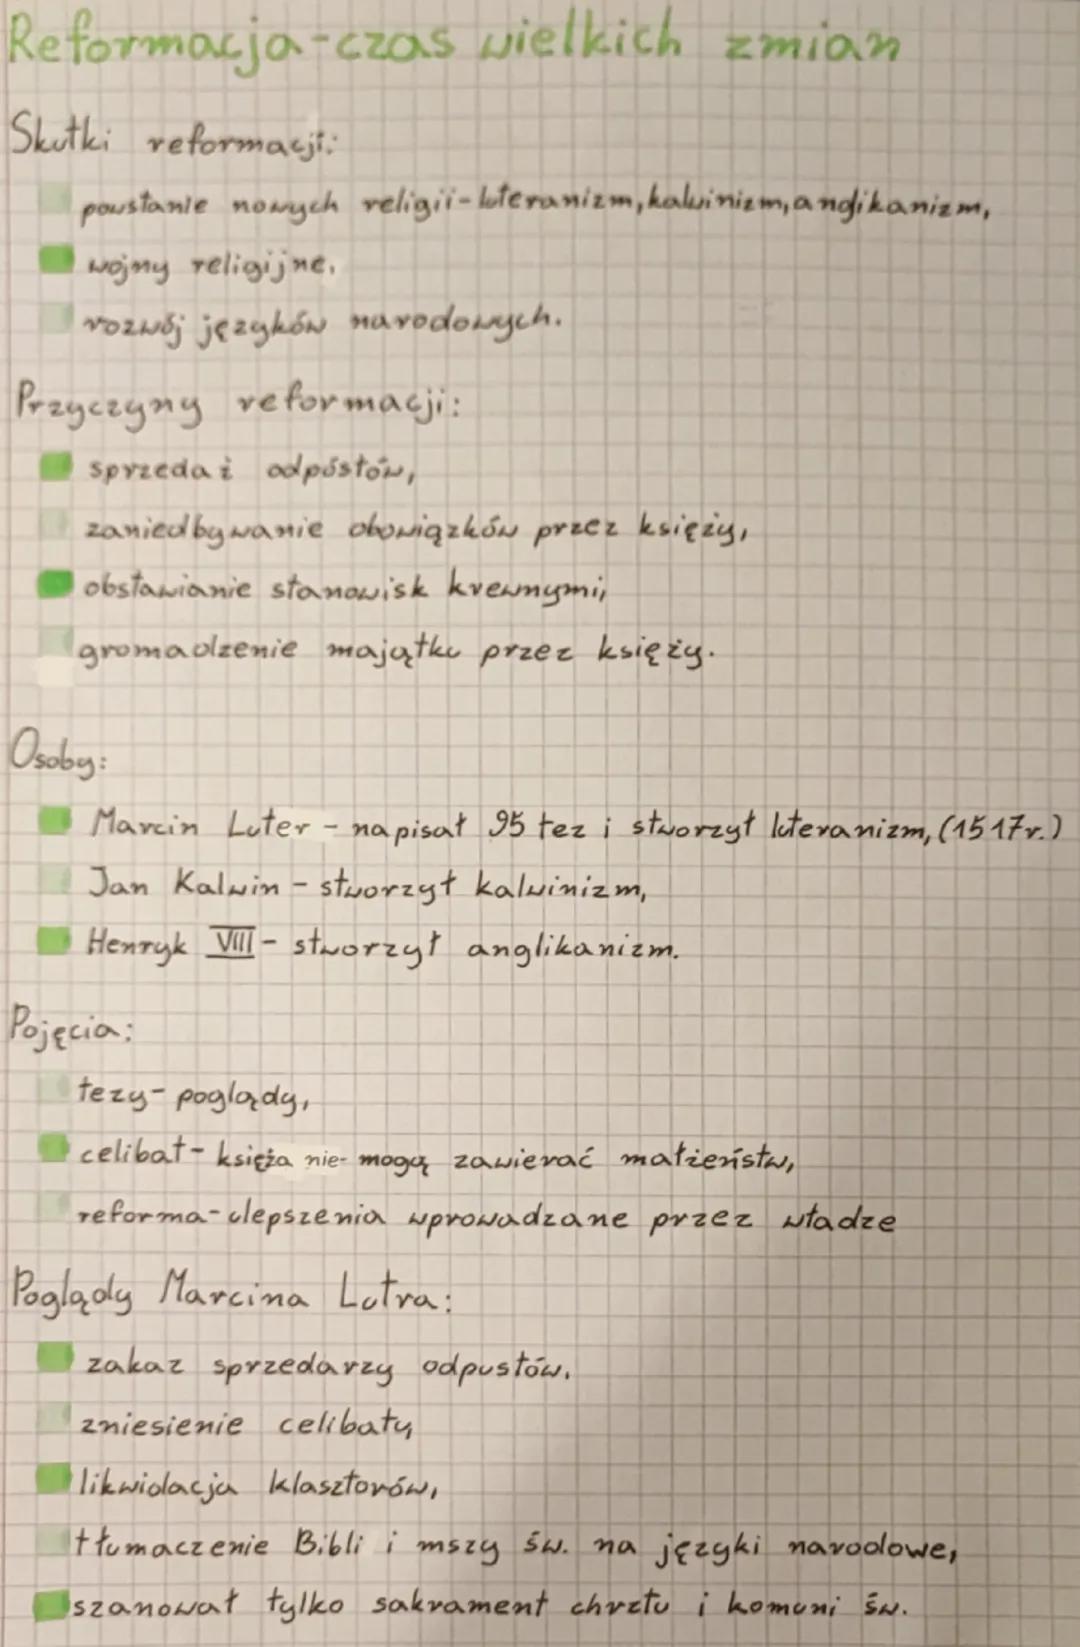 Reformacja-czas wielkich zmian
Skutki reformacji:
powstanie nowych religii-luteranizm, kalwinizm, anglikanizm,
wojny religijne,
rozwój języków narodowych.
Przyczyny reformacji:
sprzedaż odpóstów,
zaniedbywanie obowiązków przez księży,
obstawianie stanowisk krewnymi,
gromadzenie majątku przez księży.
Osoby:
Marcin Luter - napisał 95 tez i stworzył luteranizm, (1517r.)
Jan Kalwin - stworzył kalwinizm,
Henryk VIII - stworzył anglikanizm.
Pojęcia:
tezy- poglądy,
celibat- księża nie- mogą zawierać małżeństw,
reforma- ulepszenia wprowadzane przez władze
Poglądy Marcina Lutra:
zakaz sprzedarzy odpustów,
zniesienie celibatu,
likwidacja klasztorów,
tłumaczenie Bibli i mszy św. na języki narodowe,
szanował tylko sakrament chrztu i komuni św.